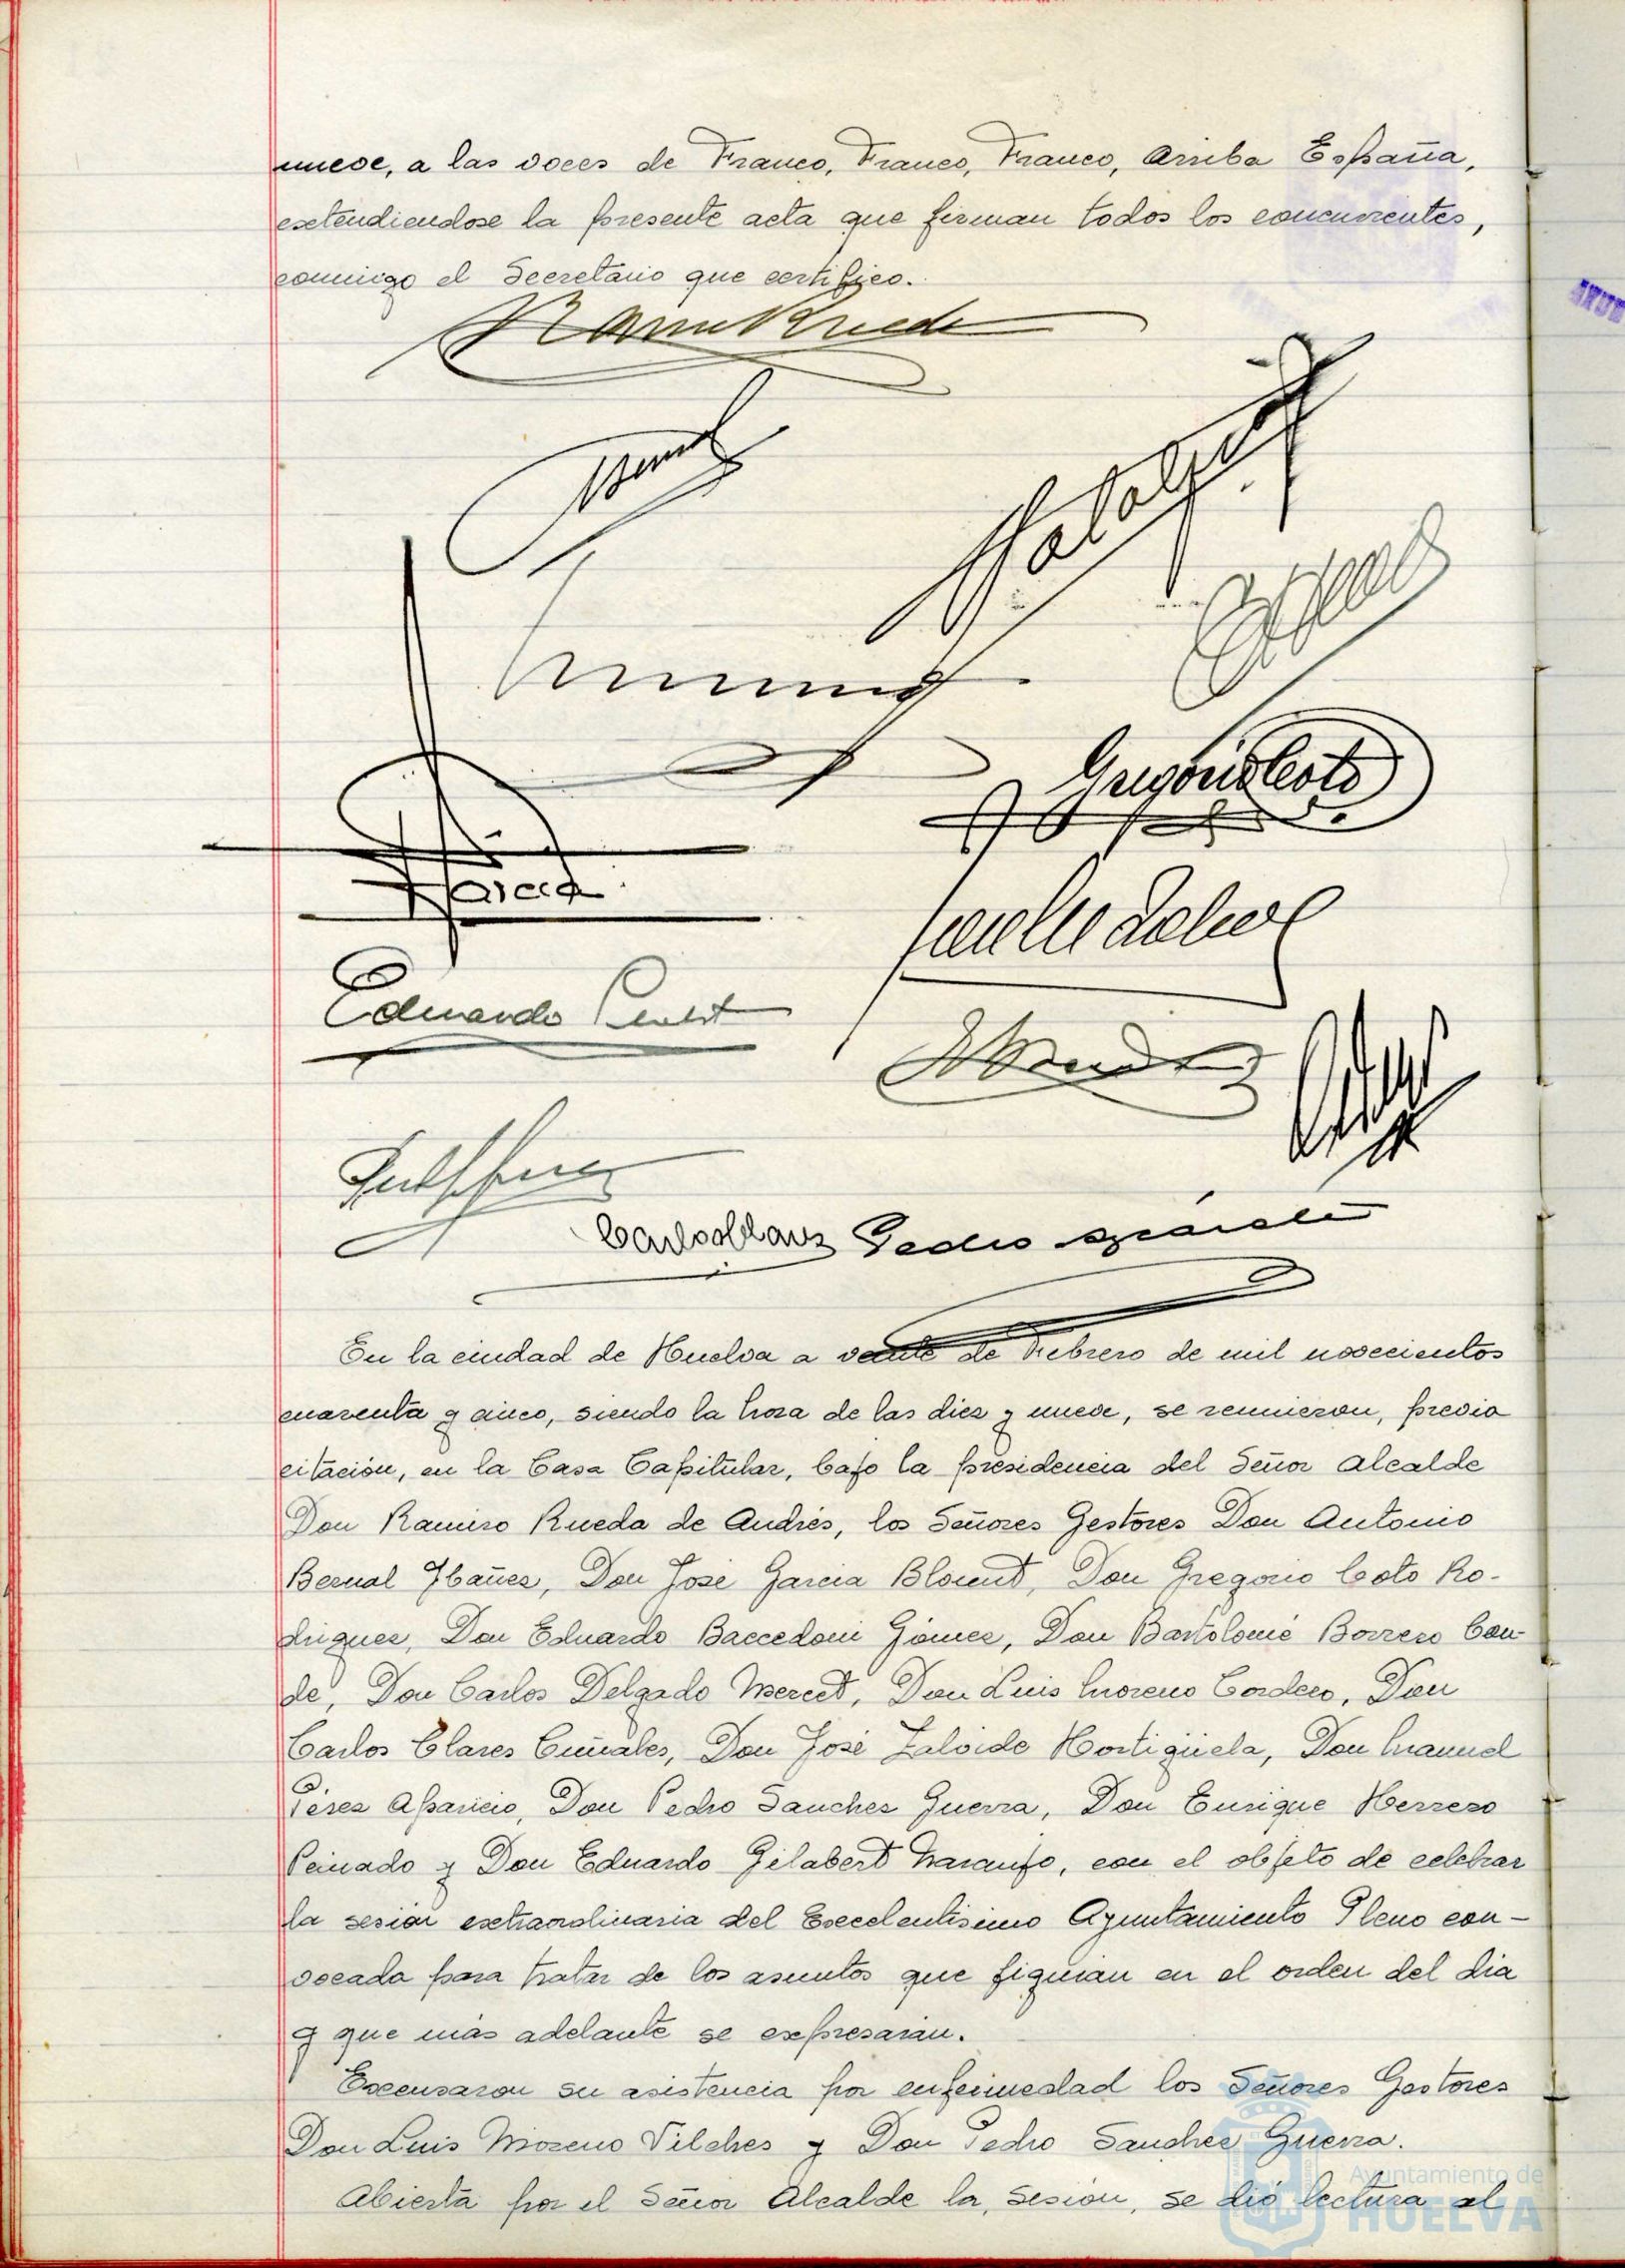 nueve, a las voces de Franco, Franco, Franco, Arriba España,
extendiendose la presente acta que firman todos los concurrentes,
conmigo el Secretario que certifico.
Garcia
Gregorio Coto
Eduardo
Carlos Clares Pedro
En la ciudad de Huelva a veinte de Febrero de mil novecientos
cuarenta y cinco, siendo la hora de las diez y nueve, se reunieron, previa
citación, en la Casa Capitular, bajo la presidencia del Señor Alcalde
Don Ramiro Rueda de Andrés, los Señores Gestores Don Antonio
Bernal Ibañez, Don José Garcia Blount, Don Gregorio Coto Ro-
driguez, Don Eduardo Baccedoni Gómez, Don Bartolomé Borrero Con-
de, Don Carlos Delgado Mercet, Don Luis Moreno Cordero, Don
Carlos Clares Cuñales, Don José Zalvide Hortigüela, Don Manuel
Pérez Aparicio, Don Pedro Sanchez Guerra, Don Enrique Herrero
Peinado y Don Eduardo Gilabert Naranjo, con el objeto de celebrar
la sesión extraordinaria del Excelentisimo Ayuntamiento Pleno con-
vocada para tratar de los asuntos que figuran en el orden del dia
y que más adelante se expresarán.
Excusaron su asistencia por enfermedad los Señores Gestores
Don Luis Moreno Vilches y Don Pedro Sanchez Guerra.
Abierta por el Señor Alcalde la sesión, se dió lectura al
Ayuntamiento de
HUELVA